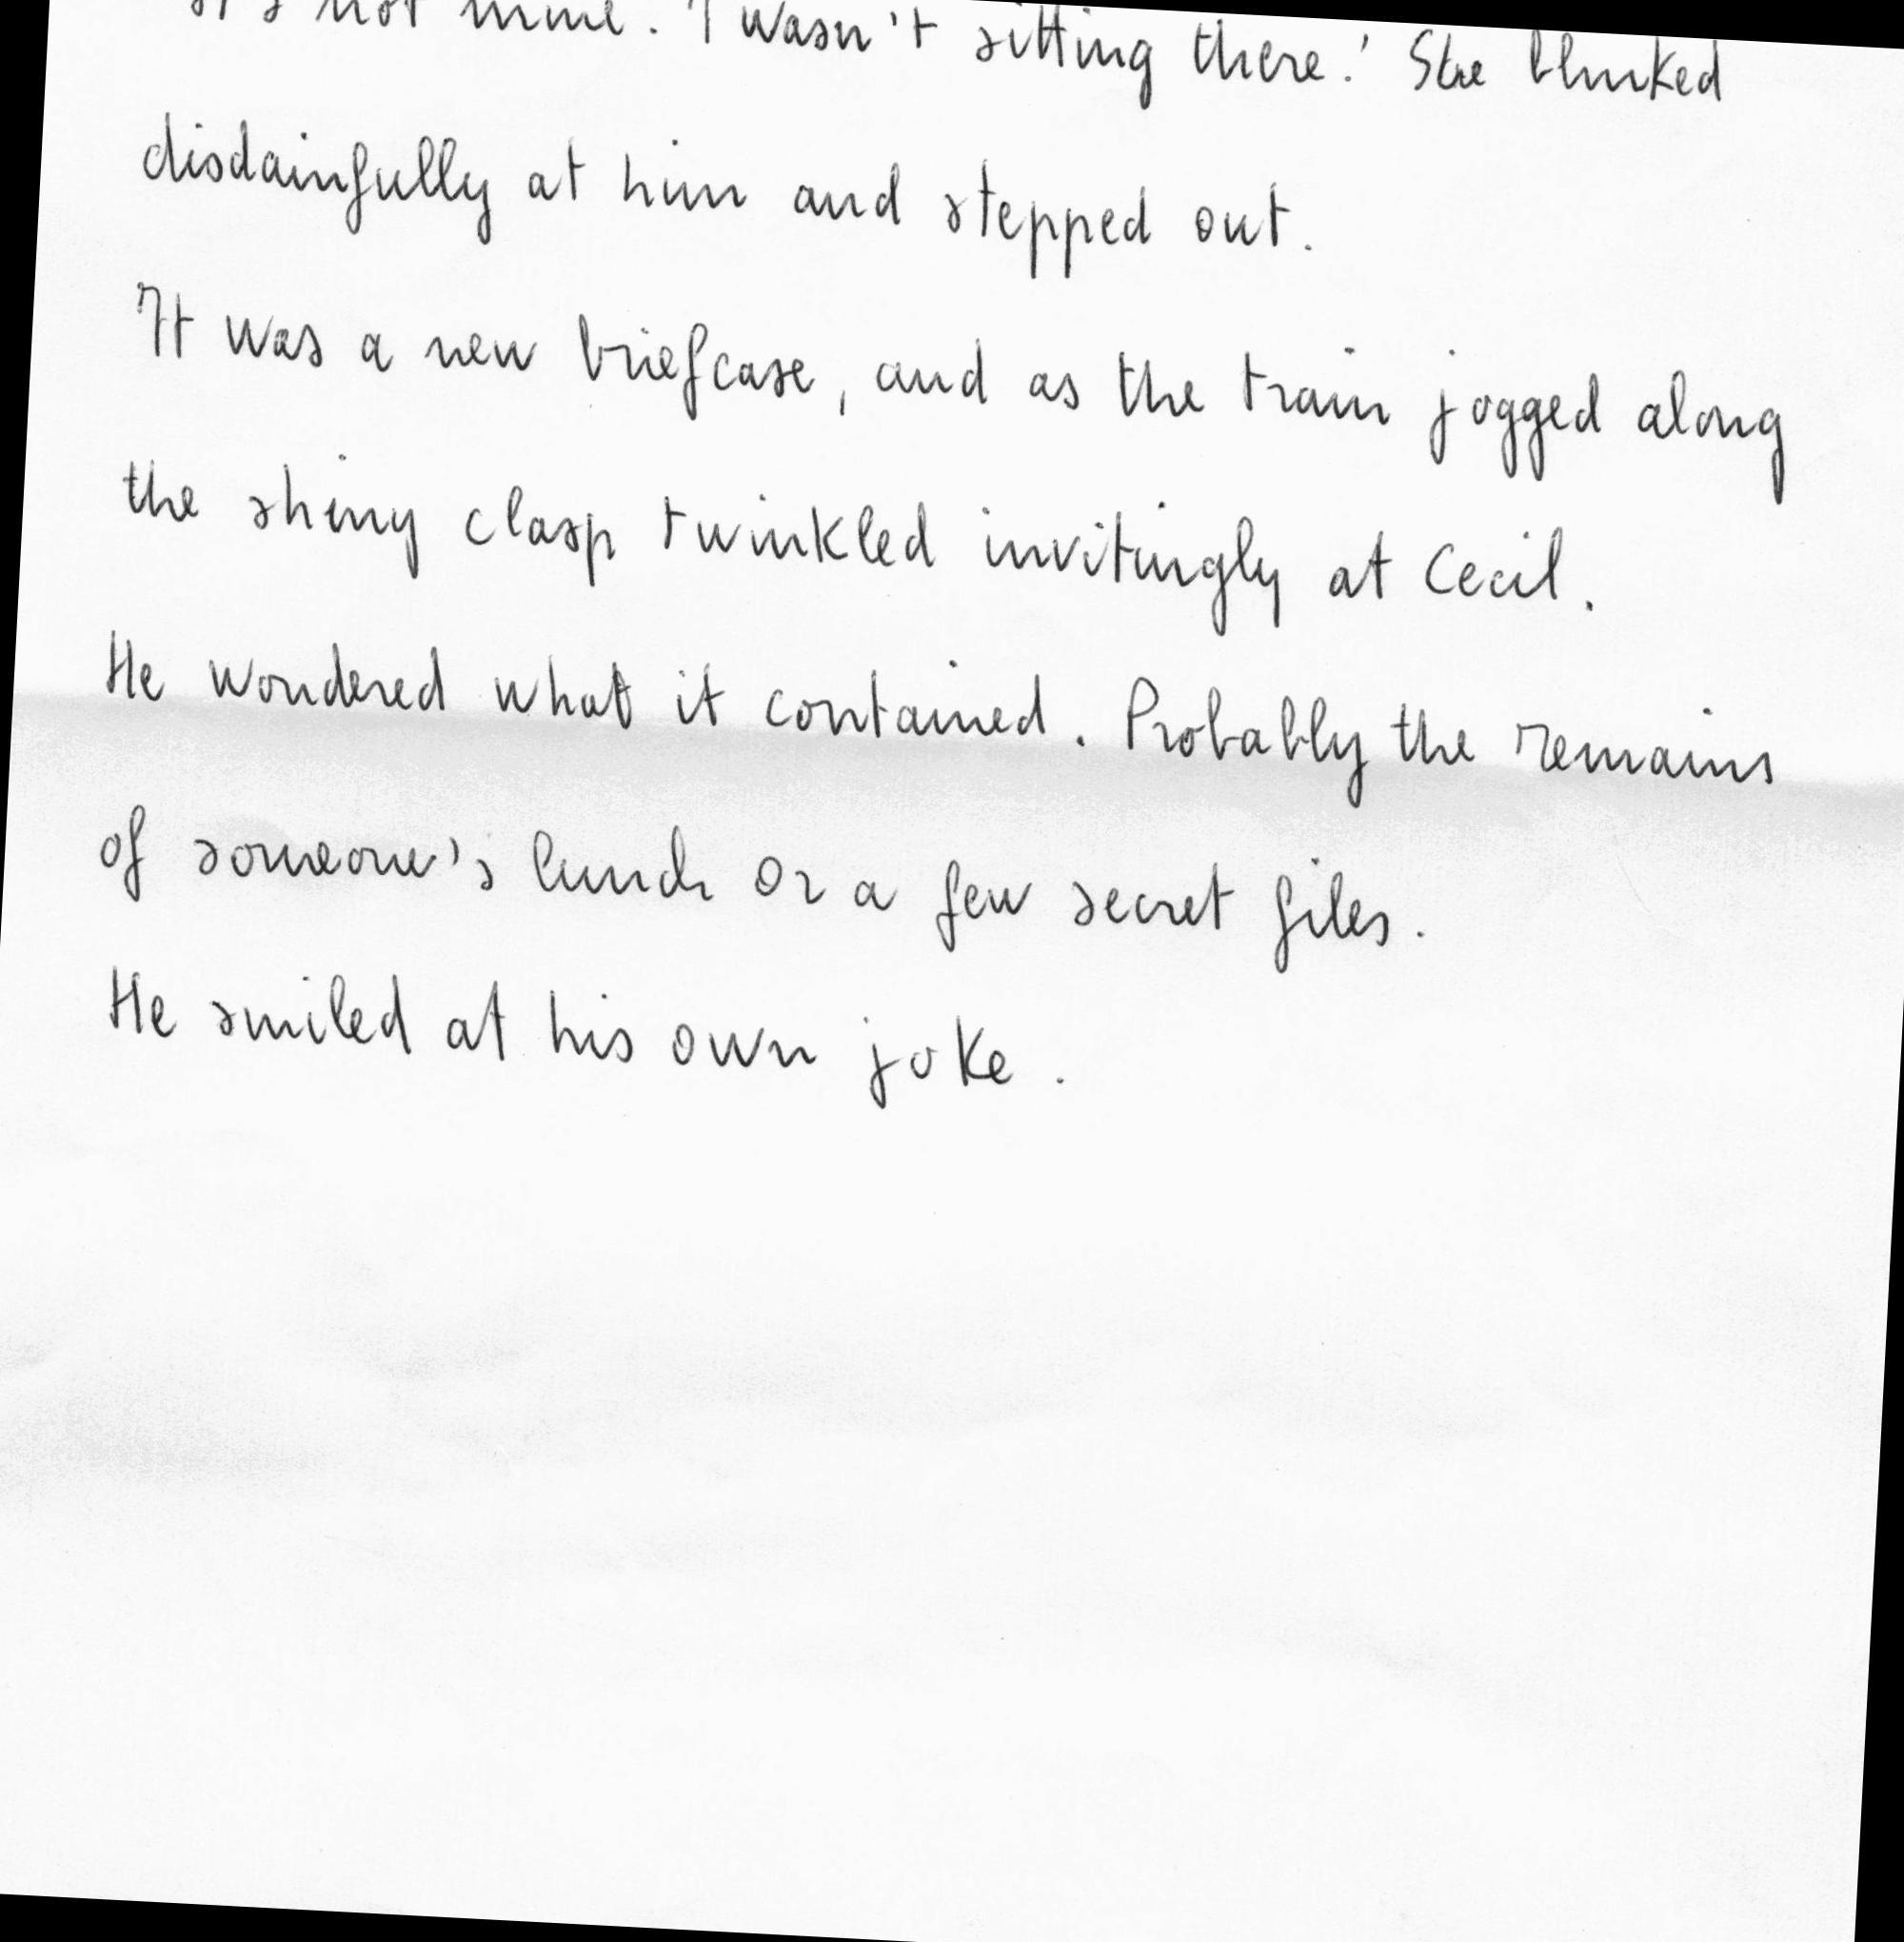 It's not mine. I wasn't sitting there.' She blinked
disdainfully at him and stepped out.
It was a new briefcase, and as the train jogged along
the shiny clasp twinkled invitingly at Cecil.
He wondered what it contained. Probably the remains
of someone's lunch or a few secret files.
He smiled at his own joke.